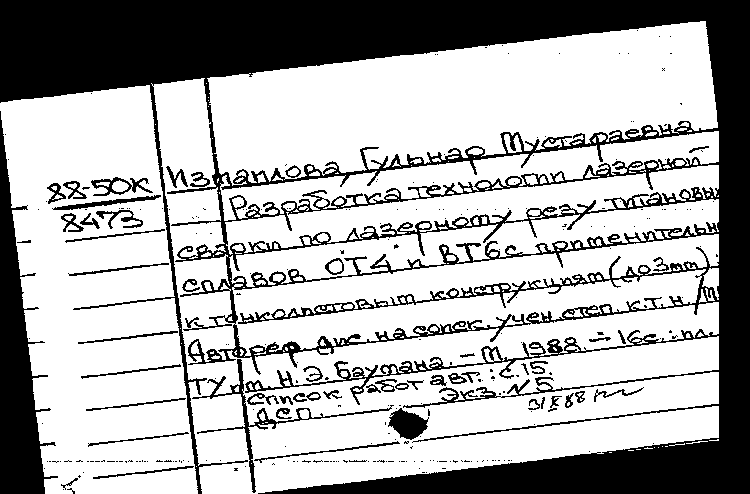 88-50К
8473
Измаилова, Гульнар Мустафаевна.
Разработка технологии лазерной
сварки по лазерному резу титановых
сплавов ОТ4 и ВТ6с применительно
к тонколистовым конструкциям (до 3мм):
Автореф. дис. на соиск. учен. степ. к.т.н. /М
ТУ им. Н. Э. Баумана. – М., 1988. – 16с.: ил.
Список работ авт.: с. 15.
Экз. N 5
ДСП.